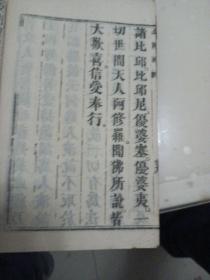 諸比邱比邱尼優婆塞優婆夷一
切世間天人阿修羅聞佛所說皆
大歡喜信受奉行